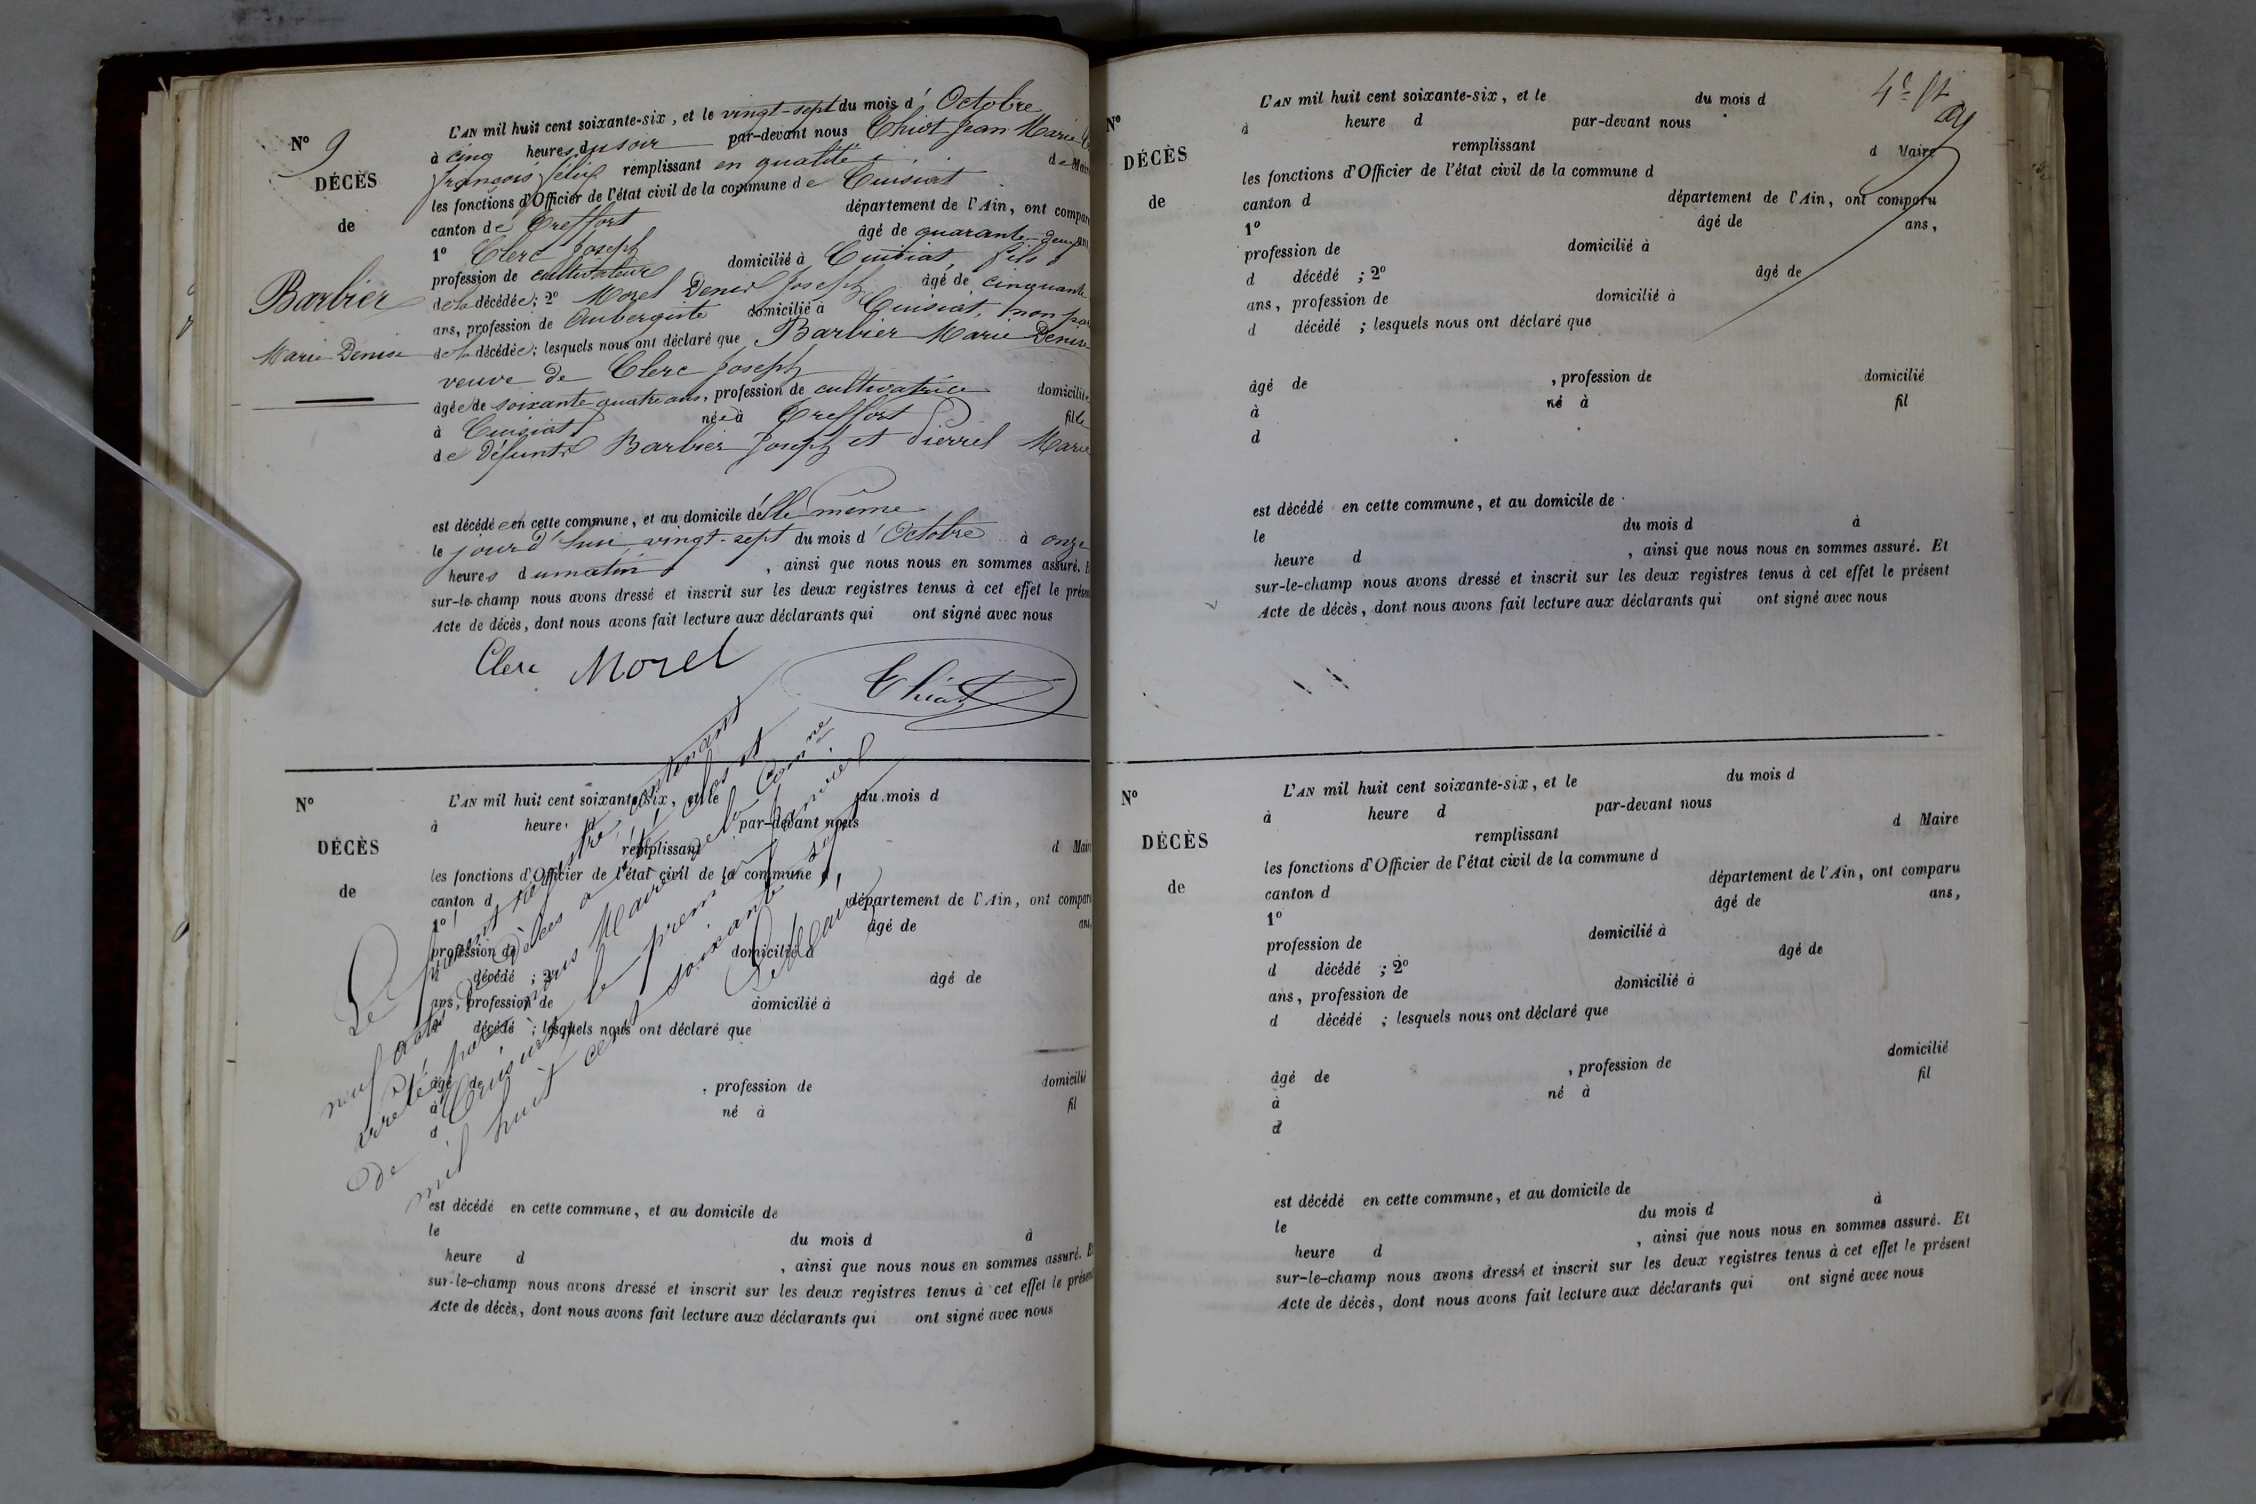 Nº 9
DÉCÈS
de
Barbier
Marie Denise
L'AN mil huit cent soixante-six, et le vingt-sept du mois d'Octobre
à cinq heures du soir par-devant nous Chiot Jean Marie
françois félix remplissant en qualité de Mair
les fonctions d'Officier de l'état civil de la commune de Cuisiat
canton de Treffort département de l'Ain, ont compar
1º Clerc Joseph âgé de quarante-deux ans
profession de cultivateur domicilié à Cuisiat, fils
de la décédée; 2º Morel Denis Joseph âgé de cinquante
ans, profession de Aubergiste domicilié à Cuisiat, non
de la décédée; lesquels nous ont déclaré que Barbier Marie Denise
veuve de Clerc Joseph
âgée de soixante quatre ans, profession de cultivatrice domiciliée
à Cuisiat née à Treffort fille
de défunts Barbier Joseph et Pierrel Marie
est décédée en cette commune, et au domicile d'elle même
le jourd'hui vingt-sept du mois d'Octobre à onze
heures du matin, ainsi que nous nous en sommes assuré. E
sur-le-champ nous avons dressé et inscrit sur les deux registres tenus à cet effet le présen
Acte de décès, dont nous avons fait lecture aux déclarants qui ont signé avec nous
Clerc Morel
Chiot
Nº
DÉCÈS
de
L'AN mil huit cent soixante-six, et le du mois d
à heure d par-devant nous
remplissant d Mair
les fonctions d'Officier de l'état civil de la commune d
canton d département de l'Ain, ont compar
1º âgé de ans,
profession de domicilié à
d décédé ; 2º âgé de
ans, profession de domicilié à
d décédé ; lesquels nous ont déclaré que
âgé de , profession de domicilié
à né à fil
d
est décédé en cette commune, et au domicile de
le du mois d à
heure d , ainsi que nous nous en sommes assuré. E
sur-le-champ nous avons dressé et inscrit sur les deux registres tenus à cet effet le présen
Acte de décès, dont nous avons fait lecture aux déclarants qui ont signé avec nous
Le présent registre, contenant
neuf actes de décès a été clos et
arrêté par nous Maire de la Comne
de Cuisiat le premier janvier
mil huit cent soixante sept
4e ft
Nº
DÉCÈS
de
L'AN mil huit cent soixante-six, et le du mois d
à heure d par-devant nous
remplissant d Maire
les fonctions d'Officier de l'état civil de la commune d
canton d département de l'Ain, ont comparu
1º âgé de ans,
profession de domicilié à
d décédé ; 2º âgé de
ans, profession de domicilié à
d décédé ; lesquels nous ont déclaré que
âgé de , profession de domicilié
à né à fil
d
est décédé en cette commune, et au domicile de
le du mois d à
heure d , ainsi que nous nous en sommes assuré. Et
sur-le-champ nous avons dressé et inscrit sur les deux registres tenus à cet effet le présent
Acte de décès, dont nous avons fait lecture aux déclarants qui ont signé avec nous
Nº
DÉCÈS
de
L'AN mil huit cent soixante-six, et le du mois d
à heure d par-devant nous
remplissant d Maire
les fonctions d'Officier de l'état civil de la commune d
canton d département de l'Ain, ont comparu
1º âgé de ans,
profession de domicilié à
d décédé ; 2º âgé de
ans, profession de domicilié à
d décédé ; lesquels nous ont déclaré que
âgé de , profession de domicilié
à né à fil
d
est décédé en cette commune, et au domicile de
le du mois d à
heure d , ainsi que nous nous en sommes assuré. Et
sur-le-champ nous avons dressé et inscrit sur les deux registres tenus à cet effet le présent
Acte de décès, dont nous avons fait lecture aux déclarants qui ont signé avec nous